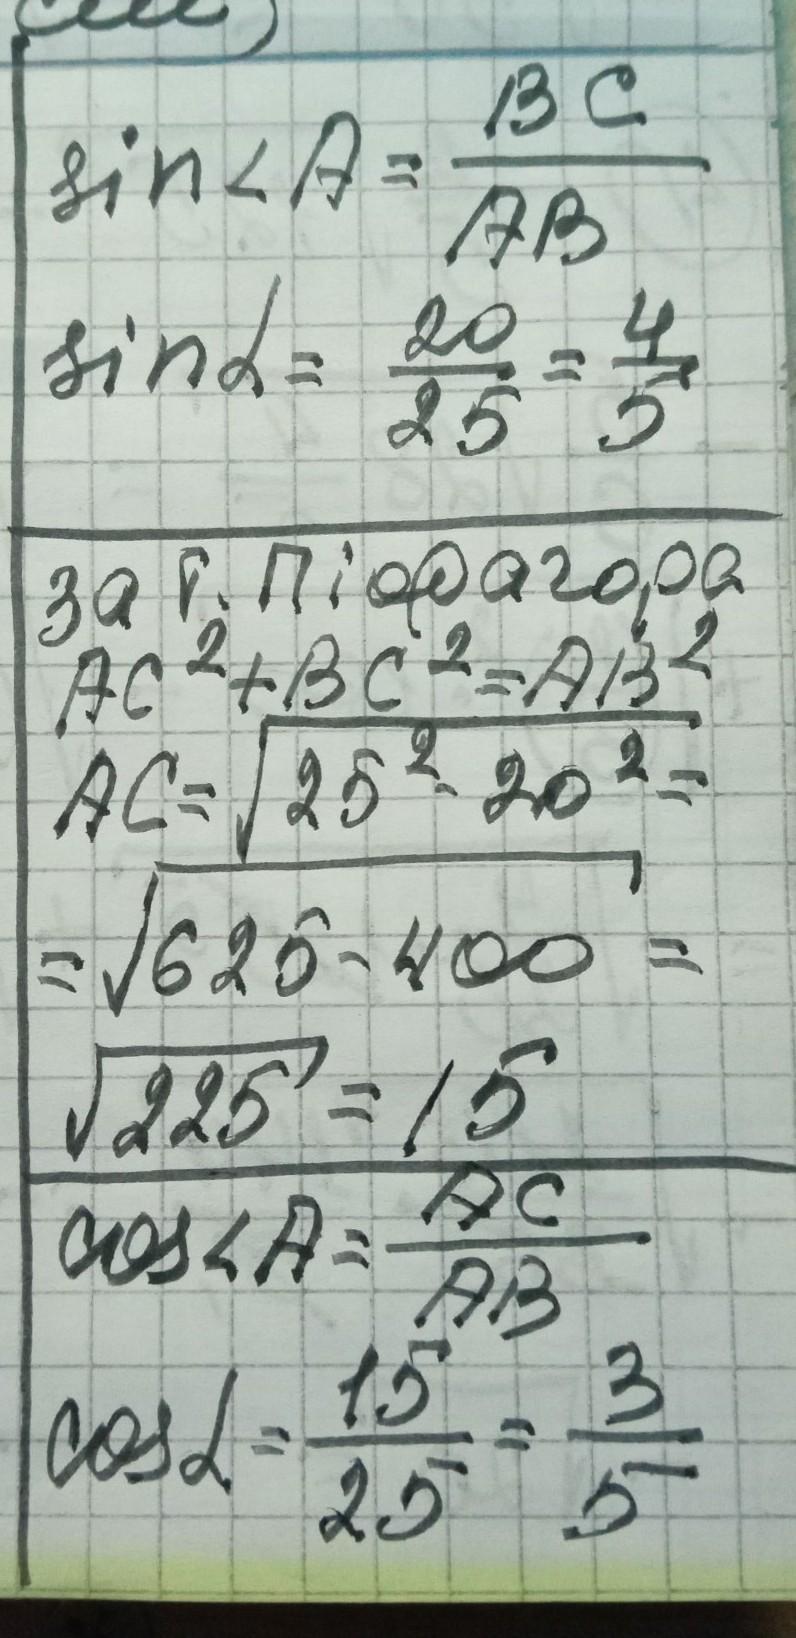 sin∠A = BC/AB
sin∠ = 20/25 = 4/5
за т. Піфагора
AC² + BC² = AB²
AC = √25² - 20² =
= √625 - 400 =
√225 = 15
cos∠A = AC/AB
cos∠ = 15/25 = 3/5